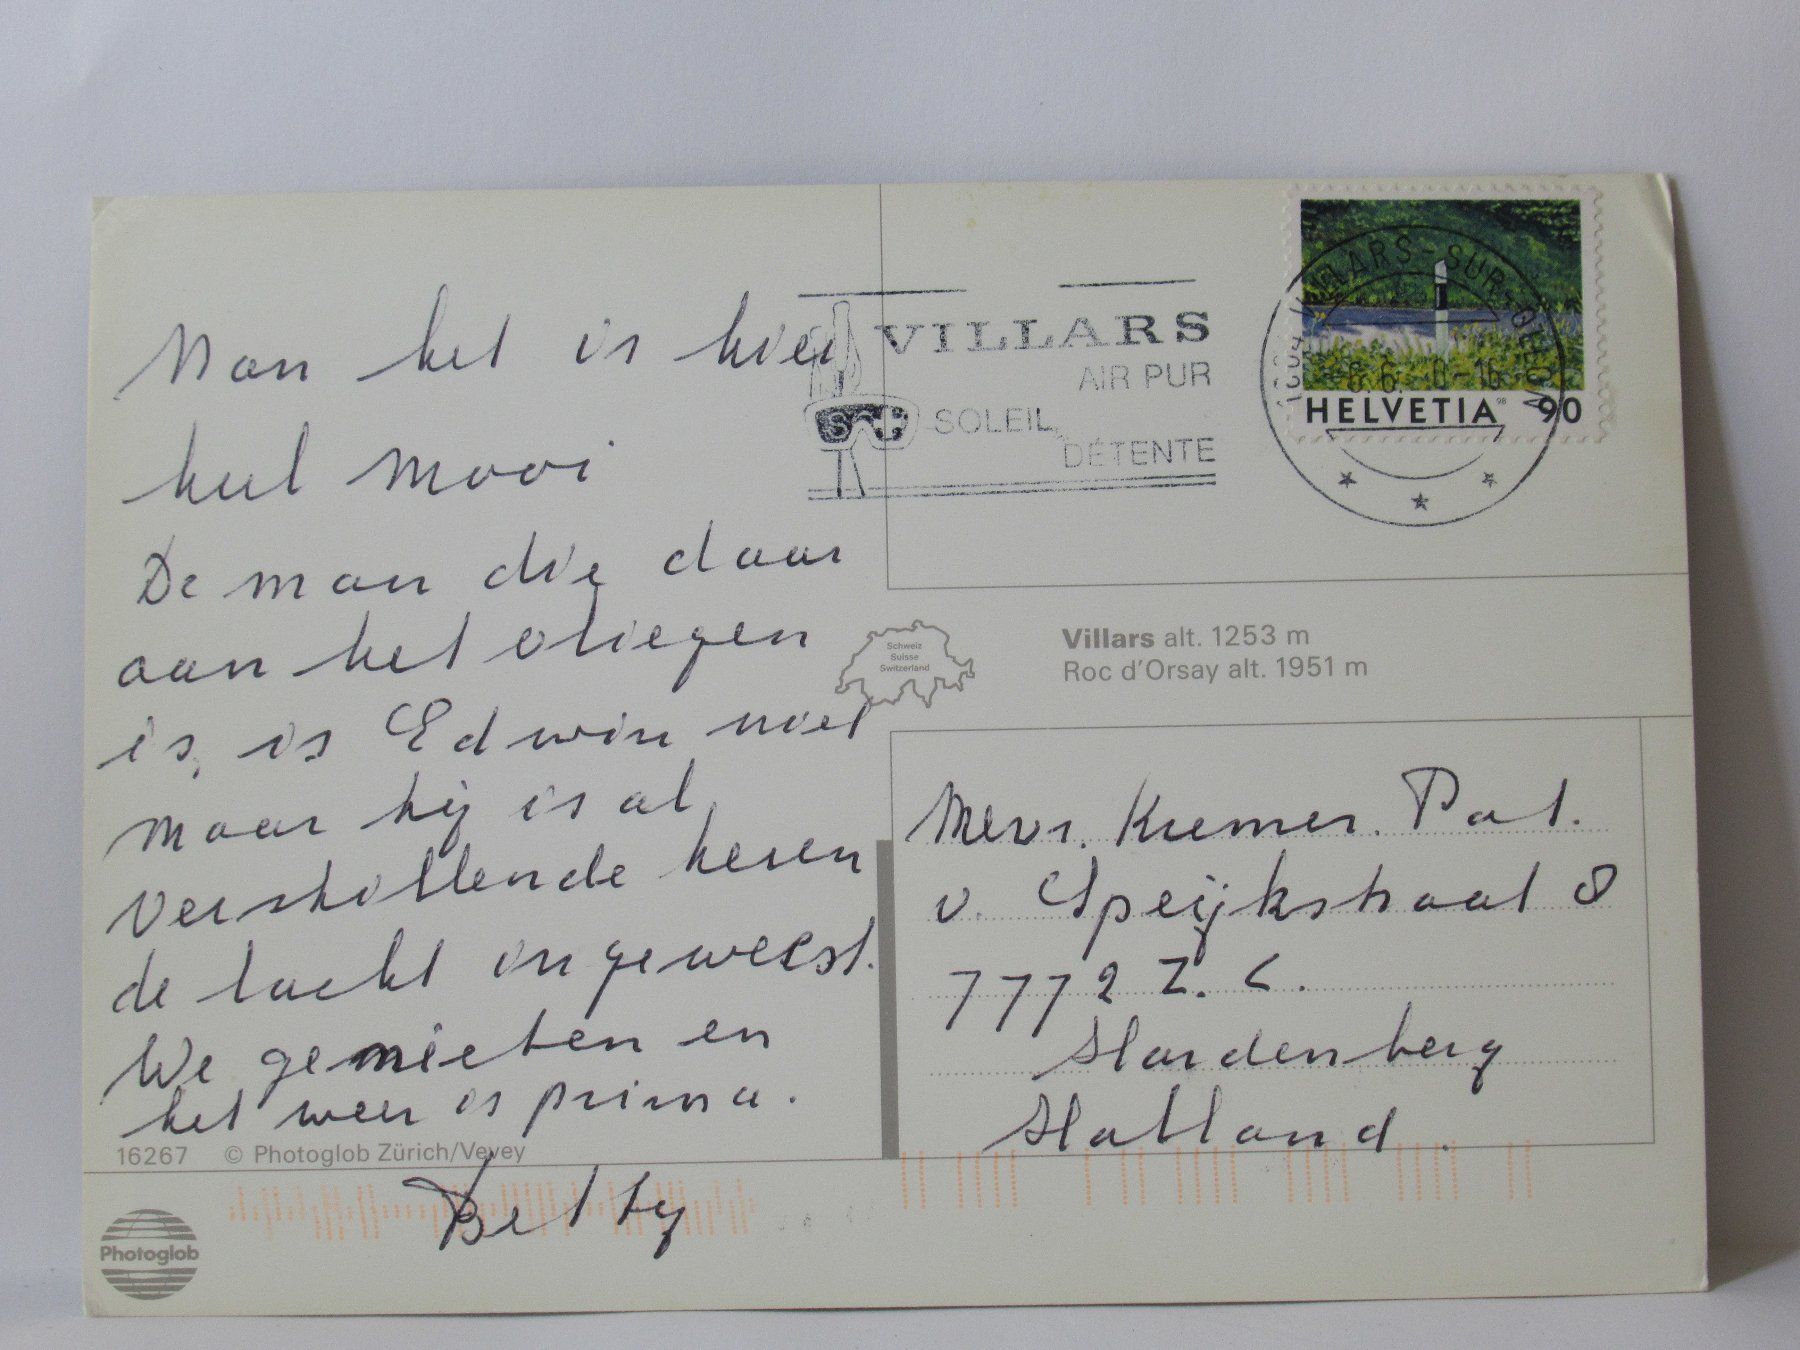 Man het is hier
heel mooi
De man die daar
aan het vliegen
is, is Edwin niet
maar hij is al
verschillende keren
de lucht in geweest.
We genieten en
het weer is prima.
Betty
16267 © Photoglob Zürich/Vevey
Photoglob
VILLARS
AIR PUR
SOLEIL
DÉTENTE
VILLARS-SUR-OLLON
HELVETIA 98 90
Schweiz
Suisse
Switzerland
Villars alt. 1253 m
Roc d'Orsay alt. 1951 m
Mevr. Kremer. Pat.
v. Speijkstraat 8
7772 Z.C.
Hardenberg
Holland.